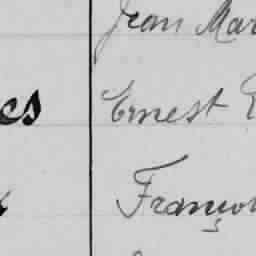 Jean Mar
es Ernest
Franço